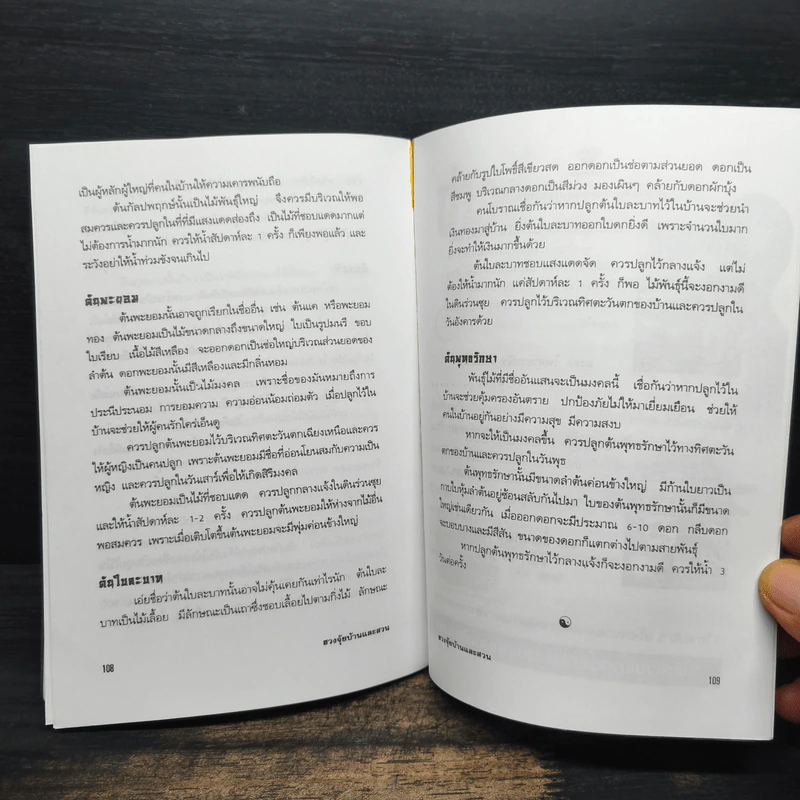 เป็นผู้หลักผู้ใหญ่ที่คนในบ้านให้ความเคารพนับถือ
ต้นกัลปพฤกษ์นั้นเป็นไม้พันธุ์ใหญ่ จึงควรมีบริเวณให้พอ
สมควรและควรปลูกในที่ที่มีแสงแดดส่องถึง เป็นไม้ที่ชอบแดดมากแต่
ไม่ต้องการน้ำมากนัก ควรให้น้ำสัปดาห์ละ 1 ครั้ง ก็เพียงพอแล้ว และ
ระวังอย่าให้น้ำท่วมขังจนเกินไป
ต้นพะยอม
ต้นพะยอมนั้นอาจถูกเรียกในชื่ออื่น เช่น ต้นแค หรือพะยอม
ทอง ต้นพะยอมเป็นไม้ขนาดกลางถึงขนาดใหญ่ ใบเป็นรูปมนรี ขอบ
ใบเรียบ เนื้อไม้สีเหลือง จะออกดอกเป็นช่อใหญ่บริเวณส่วนยอดของ
ลำต้น ดอกพะยอมนั้นมีสีเหลืองและมีกลิ่นหอม
ต้นพะยอมนั้นเป็นไม้มงคล เพราะชื่อของมันหมายถึงการ
ประนีประนอม การยอมความ ความอ่อนน้อมถ่อมตัว เมื่อปลูกไว้ใน
บ้านจะช่วยให้ผู้คนรักใคร่เอ็นดู
ควรปลูกต้นพะยอมไว้บริเวณทิศตะวันตกเฉียงเหนือและควร
ให้ผู้หญิงเป็นคนปลูก เพราะต้นพะยอมมีชื่อที่อ่อนโยนสมกับความเป็น
หญิง และควรปลูกในวันเสาร์เพื่อให้เกิดสิริมงคล
ต้นพะยอมเป็นไม้ที่ชอบแดด ควรปลูกกลางแจ้งในดินร่วนซุย
และให้น้ำสัปดาห์ละ 1-2 ครั้ง ควรปลูกต้นพะยอมให้ห่างจากไม้อื่น
พอสมควร เพราะเมื่อเติบโตขึ้นต้นพะยอมจะมีพุ่มค่อนข้างใหญ่
ต้นใบละบาท
เอ่ยชื่อว่าต้นใบละบาทนั้นอาจไม่คุ้นเคยกันเท่าไรนัก ต้นใบละ
บาทเป็นไม้เลื้อย มีลักษณะเป็นเถาซึ่งชอบเลื้อยไปตามกิ่งไม้ ลักษณะ
ฮวงจุ้ยบ้านและสวน
108
คล้ายกับรูปใบโพธิ์สีเขียวสด ออกดอกเป็นช่อตามส่วนยอด ดอกเป็น
สีชมพู บริเวณกลางดอกเป็นสีม่วง มองเผินๆ คล้ายกับดอกผักบุ้ง
คนโบราณเชื่อกันว่าหากปลูกต้นใบละบาทไว้ในบ้านจะช่วยนำ
เงินทองมาสู่บ้าน ยิ่งต้นใบละบาทออกใบดกยิ่งดี เพราะจำนวนใบมาก
ยิ่งจะทำให้เงินมากขึ้นด้วย
ต้นใบละบาทชอบแสงแดดจัด ควรปลูกไว้กลางแจ้ง แต่ไม่
ต้องให้น้ำมากนัก แค่สัปดาห์ละ 1 ครั้ง ก็พอ ไม้พันธุ์นี้จะงอกงามดี
ในดินร่วนซุย ควรปลูกไว้บริเวณทิศตะวันตกของบ้านและควรปลูกใน
วันอังคารด้วย
ต้นพุทธรักษา
พันธุ์ไม้ที่มีชื่ออันแสนจะเป็นมงคลนี้ เชื่อกันว่าหากปลูกไว้ใน
บ้านจะช่วยคุ้มครองอันตราย ปกป้องภัยไม่ให้มาเยี่ยมเยือน ช่วยให้
คนในบ้านอยู่กันอย่างมีความสุข มีความสงบ
หากจะให้เป็นมงคลขึ้น ควรปลูกต้นพุทธรักษาไว้ทางทิศตะวัน
ตกของบ้านและควรปลูกในวันพุธ
ต้นพุทธรักษานั้นมีขนาดลำต้นค่อนข้างใหญ่ มีก้านใบยาวเป็น
กาบใบหุ้มลำต้นอยู่ซ้อนสลับกันไปมา ใบของต้นพุทธรักษานั้นก็มีขนาด
ใหญ่เช่นเดียวกัน เมื่อออกดอกจะมีประมาณ 6-10 ดอก กลีบดอก
จะบอบบางและมีสีสัน ขนาดของดอกก็แตกต่างไปตามสายพันธุ์
หากปลูกต้นพุทธรักษาไว้กลางแจ้งก็จะงอกงามดี ควรให้น้ำ 3
วันต่อครั้ง
ฮวงจุ้ยบ้านและสวน
109